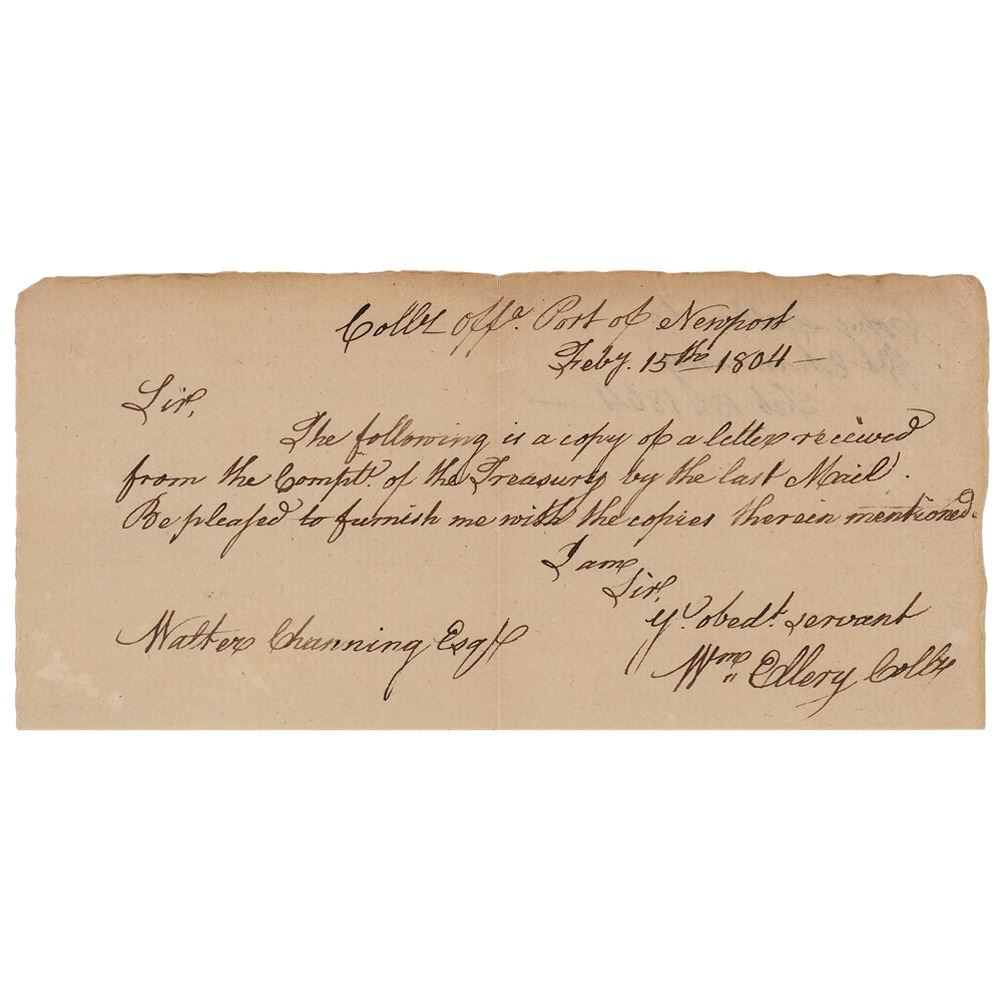 Collrs Offe. Port of Newport
Feby. 15th 1804 —
Sir,
The following is a copy of a letter received
from the Comptr. of the Treasury by the last Mail.
Be pleased to furnish me with the copies therein mentioned.
I am
Sir,
Yr. obedt. servant
Walter Channing Esqr
Wm Ellery Collr